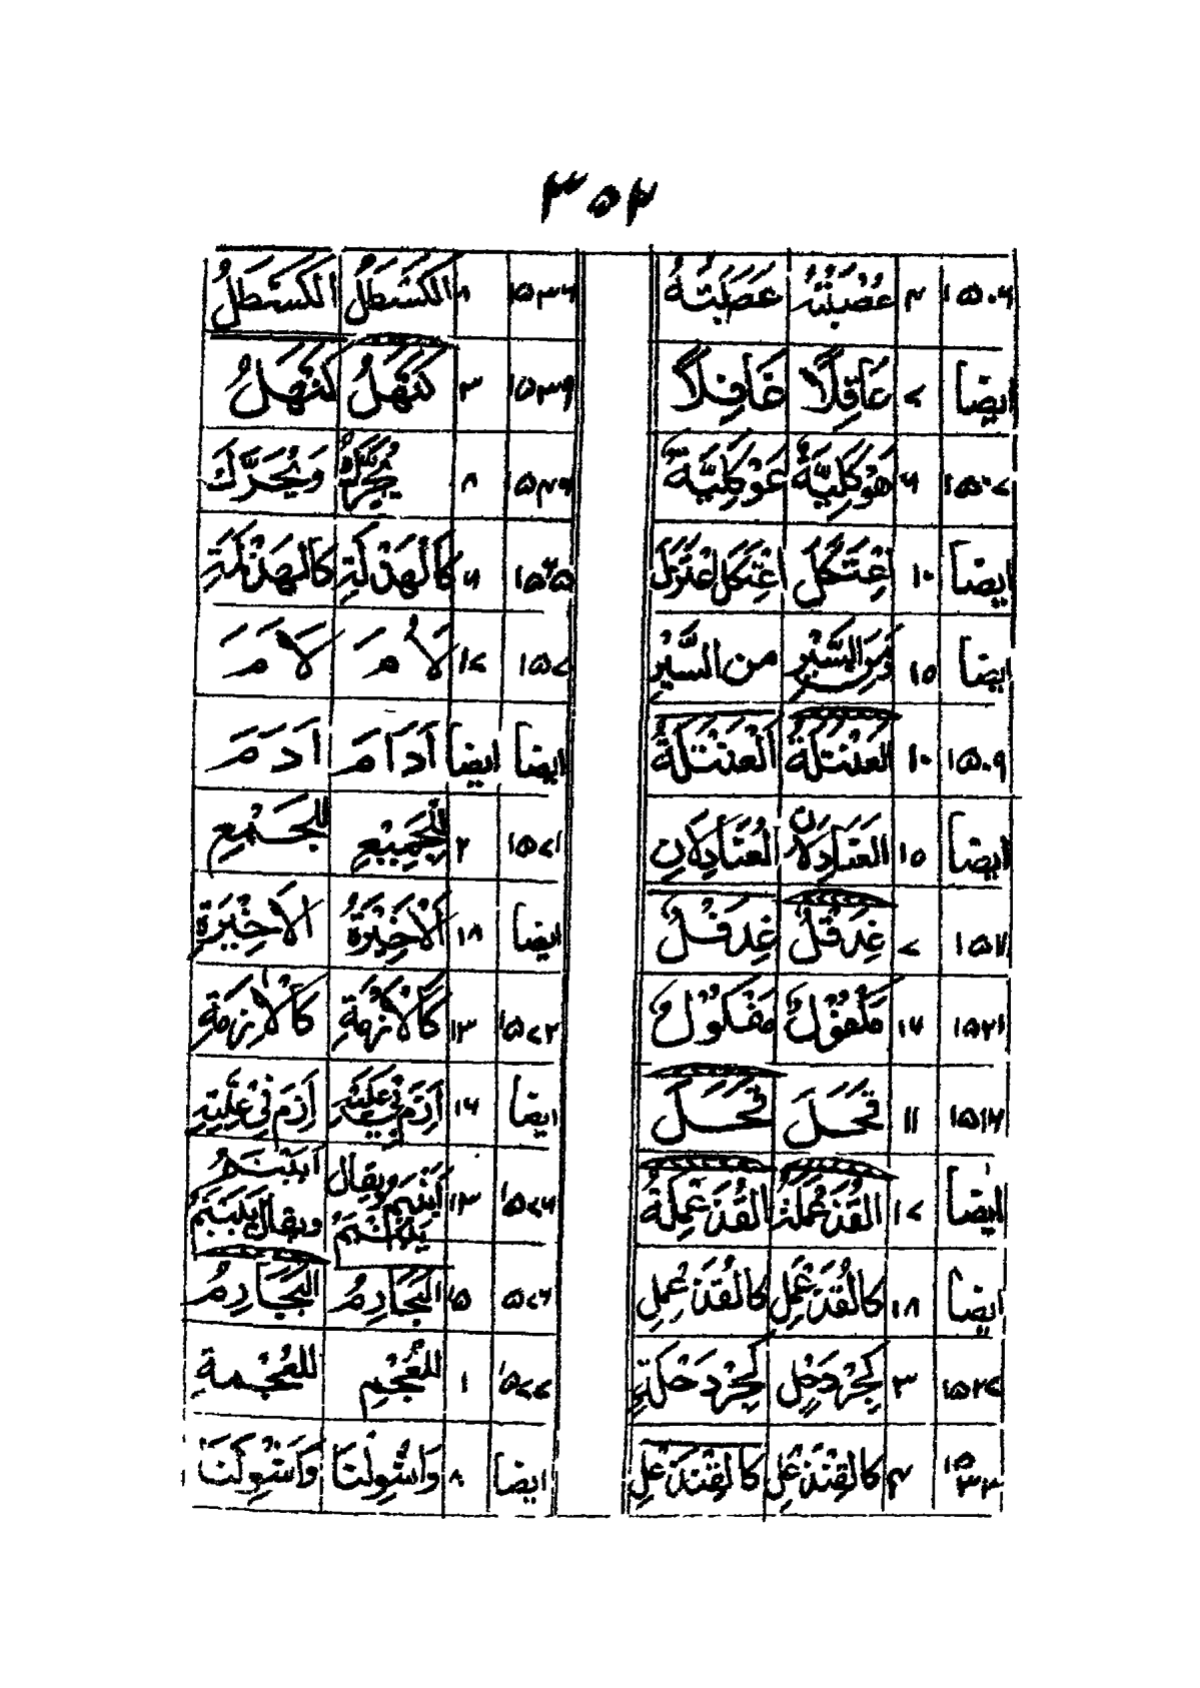 ٣٥٢
١٥٠٦ ٤ عُصْبُلَتُهُ عَصَلَبَتُهُ
ايضا ٧ عَاقِلًا خَافِلًا
١٥٠٧ ٦ هَوْكَلِيَّةٌ عَوْكَلِيَّةٌ
ايضا ١٠ اعْتَكَلَ اعْتَكَلَ اعْتَزَلَ
ايضا ١٥ وَمِنَ السَّيْرِ من السَّيْرِ
١٥٠٩ ١٠ العَنْتَلَةُ الْعُنْتُلَةُ
ايضا ١٥ العَنَادِلَانِ العُنَادِلَانِ
١٥١٧ ٧ غِدَقْلٌ غِدَفْلٌ
١٥٢١ ١٤ مَلْعُوْلٌ مَفْكُوْلٌ
١٥١٢ ١١ قَحَلَ قَحَلَ
ايضا ١٧ القُذَعْمِلَةُ القُذَعْمِلَةُ
ايضا ١٨ كالقُذَعْمِلِ كالقُذَعْمِلِ
١٥٢٧ ٣ كَجِرْدَحْلٍ كَجِرْدَحْلَةٍ
١٥٣٣ ٤ كالقِنْذَعْلِ كالقِنْذَعْلِ
١٥٣٦ ٨ الكَسْطَلُ الكَسْطَلُ
١٥٣٩ ٣ كَنَهْلُ كَنَهْلُ
١٥٤٦ ٨ يُحَرَّكُ وَيُحَرَّكُ
١٥٦٥ ٦ كَالْهَذْلَمَةِ كالهَذْلَمَةِ
١٥٧٠ ١٧ لَأُمَ لَأَمَ
ايضا ايضا اَدَامَ اَدَمَ
١٥٧١ ٢ لِلْجَمِيْعِ للجَمْعِ
ايضا ١٨ الْأَخِيْرَةُ الأَخِيْرَةُ
١٥٧٢ ١٣ كَالْأَزْمَةِ كَالْأَزِمَةِ
ايضا ١٤ اَزَمَ فِي عَلَيْهِ اَزَمَ فِي عَلَيْهِ
١٥٧٤ ١٣ ويقال
ويقال
١٥٧٦ ٥ البُجَارِمُ البُجَارِمُ
١٥٧٧ ١ للعُجْمِ للعُجْمَةِ
ايضا ٨